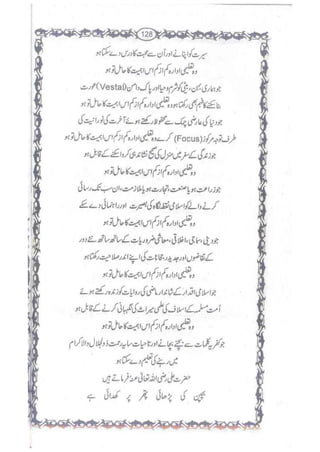 128
سیرت کو اپنانے اور اُن سے محبت کا درس دے سکتا ہو
وہ تعلیمی ادارہ کم از کم اس اہمیت کا حامل تو ہو
جو ہماری بہن، بیٹی کو شرم و حیا اور پاک دامن (Vestal) عورت
بنانے کا فہم بھی رکھتا ہو وہ تعلیمی ادارہ کم از کم اس اہمیت کا حامل تو ہو
جو دنیا کی عارضی چمک سے محفوظ رکھتے ہوئے آخرت کی نورانیت کی
طرف توجہ مرکوز (Focus) کرے وہ تعلیمی ادارہ کم از کم اس اہمیت کا حامل تو ہو
جو زندگی کے سفر میں منزل کی صحیح نشاندہی کروا سکنے کے قابل ہو
وہ تعلیمی ادارہ کم از کم اس اہمیت کا حامل تو ہو
جو زراعت ہو یا صنعت، تجارت ہو یا ملازمت، ان سب تک رسائی
کرنے والے کو اسلامی نقطہ نگاہ کی بصیرت اور راہنمائی دے سکے
وہ تعلیمی ادارہ کم از کم اس اہمیت کا حامل تو ہو
جو دینی، سماجی، اخلاقی، معاشی ضروریات کے ساتھ ساتھ نئے دور
کے تقاضوں اور جدید رجحانات کی اپنے اندر صلاحیت رکھتا ہو
وہ تعلیمی ادارہ کم از کم اس اہمیت کا حامل تو ہو
جو اسلامی اقدار کے شاندار ماضی کی روایات کو زندہ رکھتے ہوئے
اُمت مسلمہ کے اسلاف کی علمی میراث کی نگہبانی کرنے کے قابل ہو
وہ تعلیمی ادارہ کم از کم اس اہمیت کا حامل تو ہو
جو کفریہ کلمات سے بچنے بچانے اور تاحیات سایہ رحمت ذوالجلال والاکرام
میں رہنے کی تعلیم دے سکتا ہو
حضرت علی رضی اللہ تعالیٰ عنہ فرماتے ہیں
بچپن کی پڑھائی پتھر پر کھدائی ہے